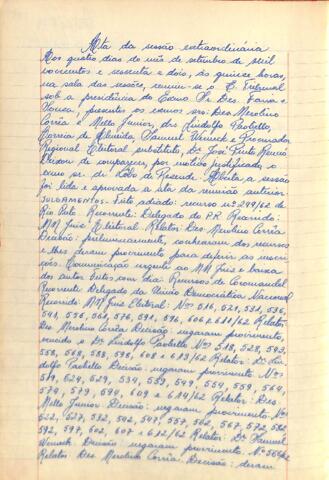 Ata da sessão extraordinária
Aos quatro dias do mês de setembro de mil
novecentos e sessenta e dois, às quinze horas,
na sala das sessões, reuniu-se o E. Tribunal
sob a presidência do Exmo Sr. Des. Faria e
Sousa, presentes os exmos srs. Des. Merolino
Corrêa e Mello Junior, drs. Lindolfo Paoliello,
Correia de Almeida, Samuel Werneck e Procurador
Regional Eleitoral substituto, Dr. José Pinto Renno.
Deixou de comparecer, por motivo justificado, o
exmo sr. dr. Lobo de Resende. Aberta a sessão
foi lida e aprovada a ata da reunião anterior.
Julgamentos: Feito adiado: recurso nº 249/62 de
Rio Preto. Recorrente: Delegado do P.R. Recorrido:
MM Juiz Eleitoral. Relator: Des. Merolino Corrêa
Decisão: preliminarmente, conheceram dos recursos
e lhes deram provimento para deferir as inscri-
ções. Comunicação urgente ao MM Juiz e baixa
dos autos. Feitos com dia: Recursos de Coromandel
Recorrente: Delegado da União Democrática Nacional
Recorrido: MM Juiz Eleitoral: Nºs 516, 521, 531, 536,
541, 556, 561, 576, 591, 596, 606 e 611/62 Relator:
Des. Merolino Corrêa Decisão: negaram provimento,
vencido o Dr. Lindolfo Paoliello Nºs 518, 528, 543,
558, 568, 588, 598, 608 e 613/62 Relator: Dr. Lin-
dolfo Paoliello Decisão: negaram provimento. Nºs
519, 524, 529, 534, 539, 549, 554, 559, 564,
574, 579, 594, 609 e 614/62 Relator: Des.
Mello Junior Decisão: negaram provimento. Nºs
522, 527, 532, 542, 547, 557, 562, 567, 572, 582
592, 597, 602, 607 e 612/62 Relator: Dr. Samuel
Werneck. Decisão: negaram provimento. Nº
Relator: Des. Merolino Corrêa. Decisão: deram